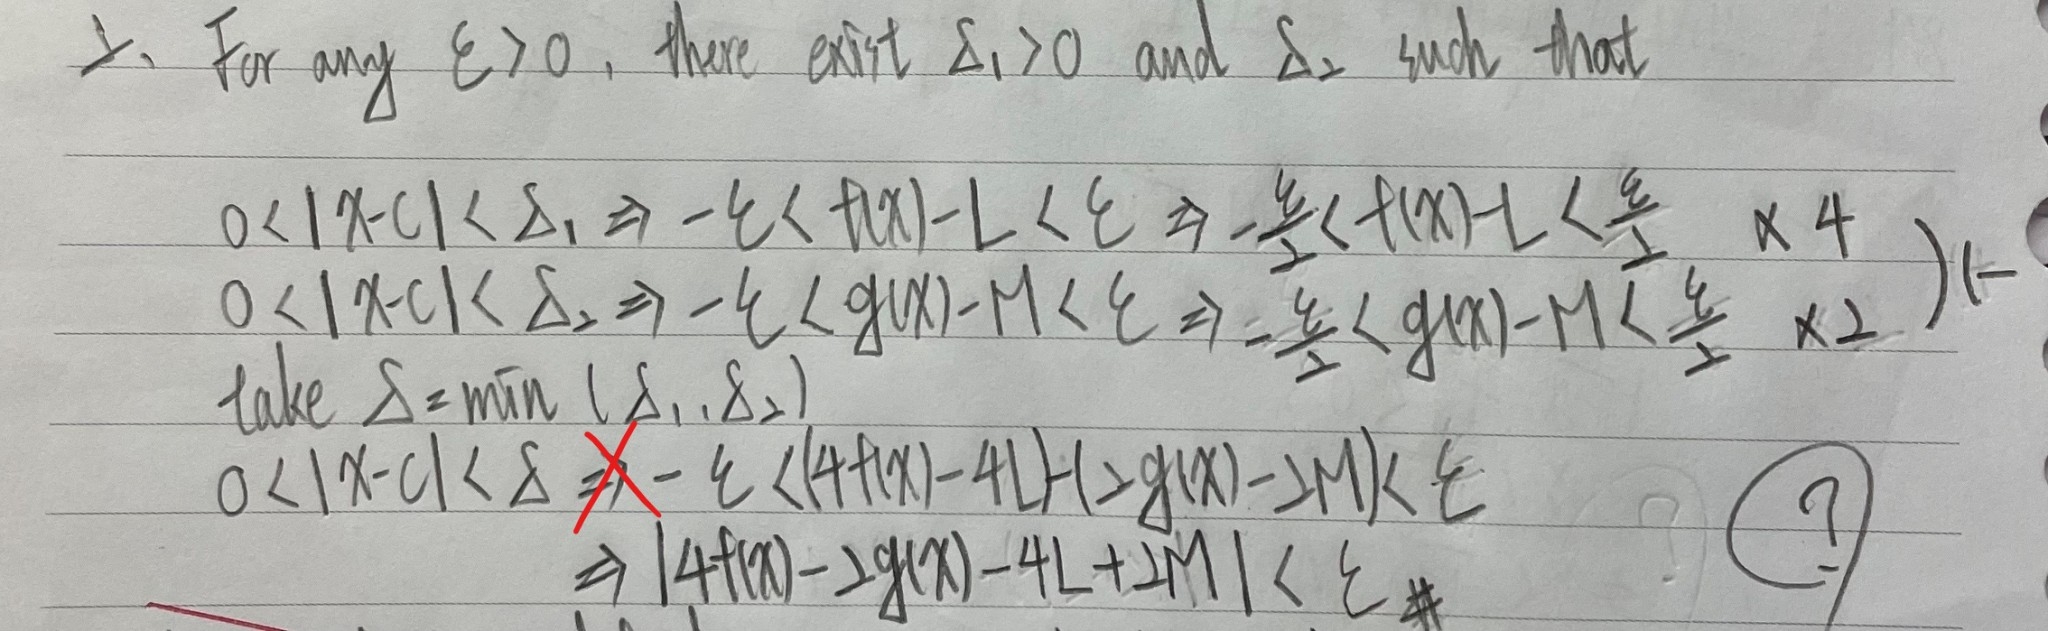 2. For any ε>0, there exist δ₁>0 and δ₂ such that
0<|x-c|<δ₁ ⇒ -ε<f(x)-L<ε ⇒ -ε/2<f(x)-L<ε/2 ×4
0<|x-c|<δ₂ ⇒ -ε<g(x)-M<ε ⇒ -ε/2<g(x)-M<ε/2 ×2 )(-
take δ=min(δ₁,δ₂)
0<|x-c|<δ ⇒ -ε<(4f(x)-4L)-(2g(x)-2M)<ε
⇒ |4f(x)-2g(x)-4L+2M|<ε #
?